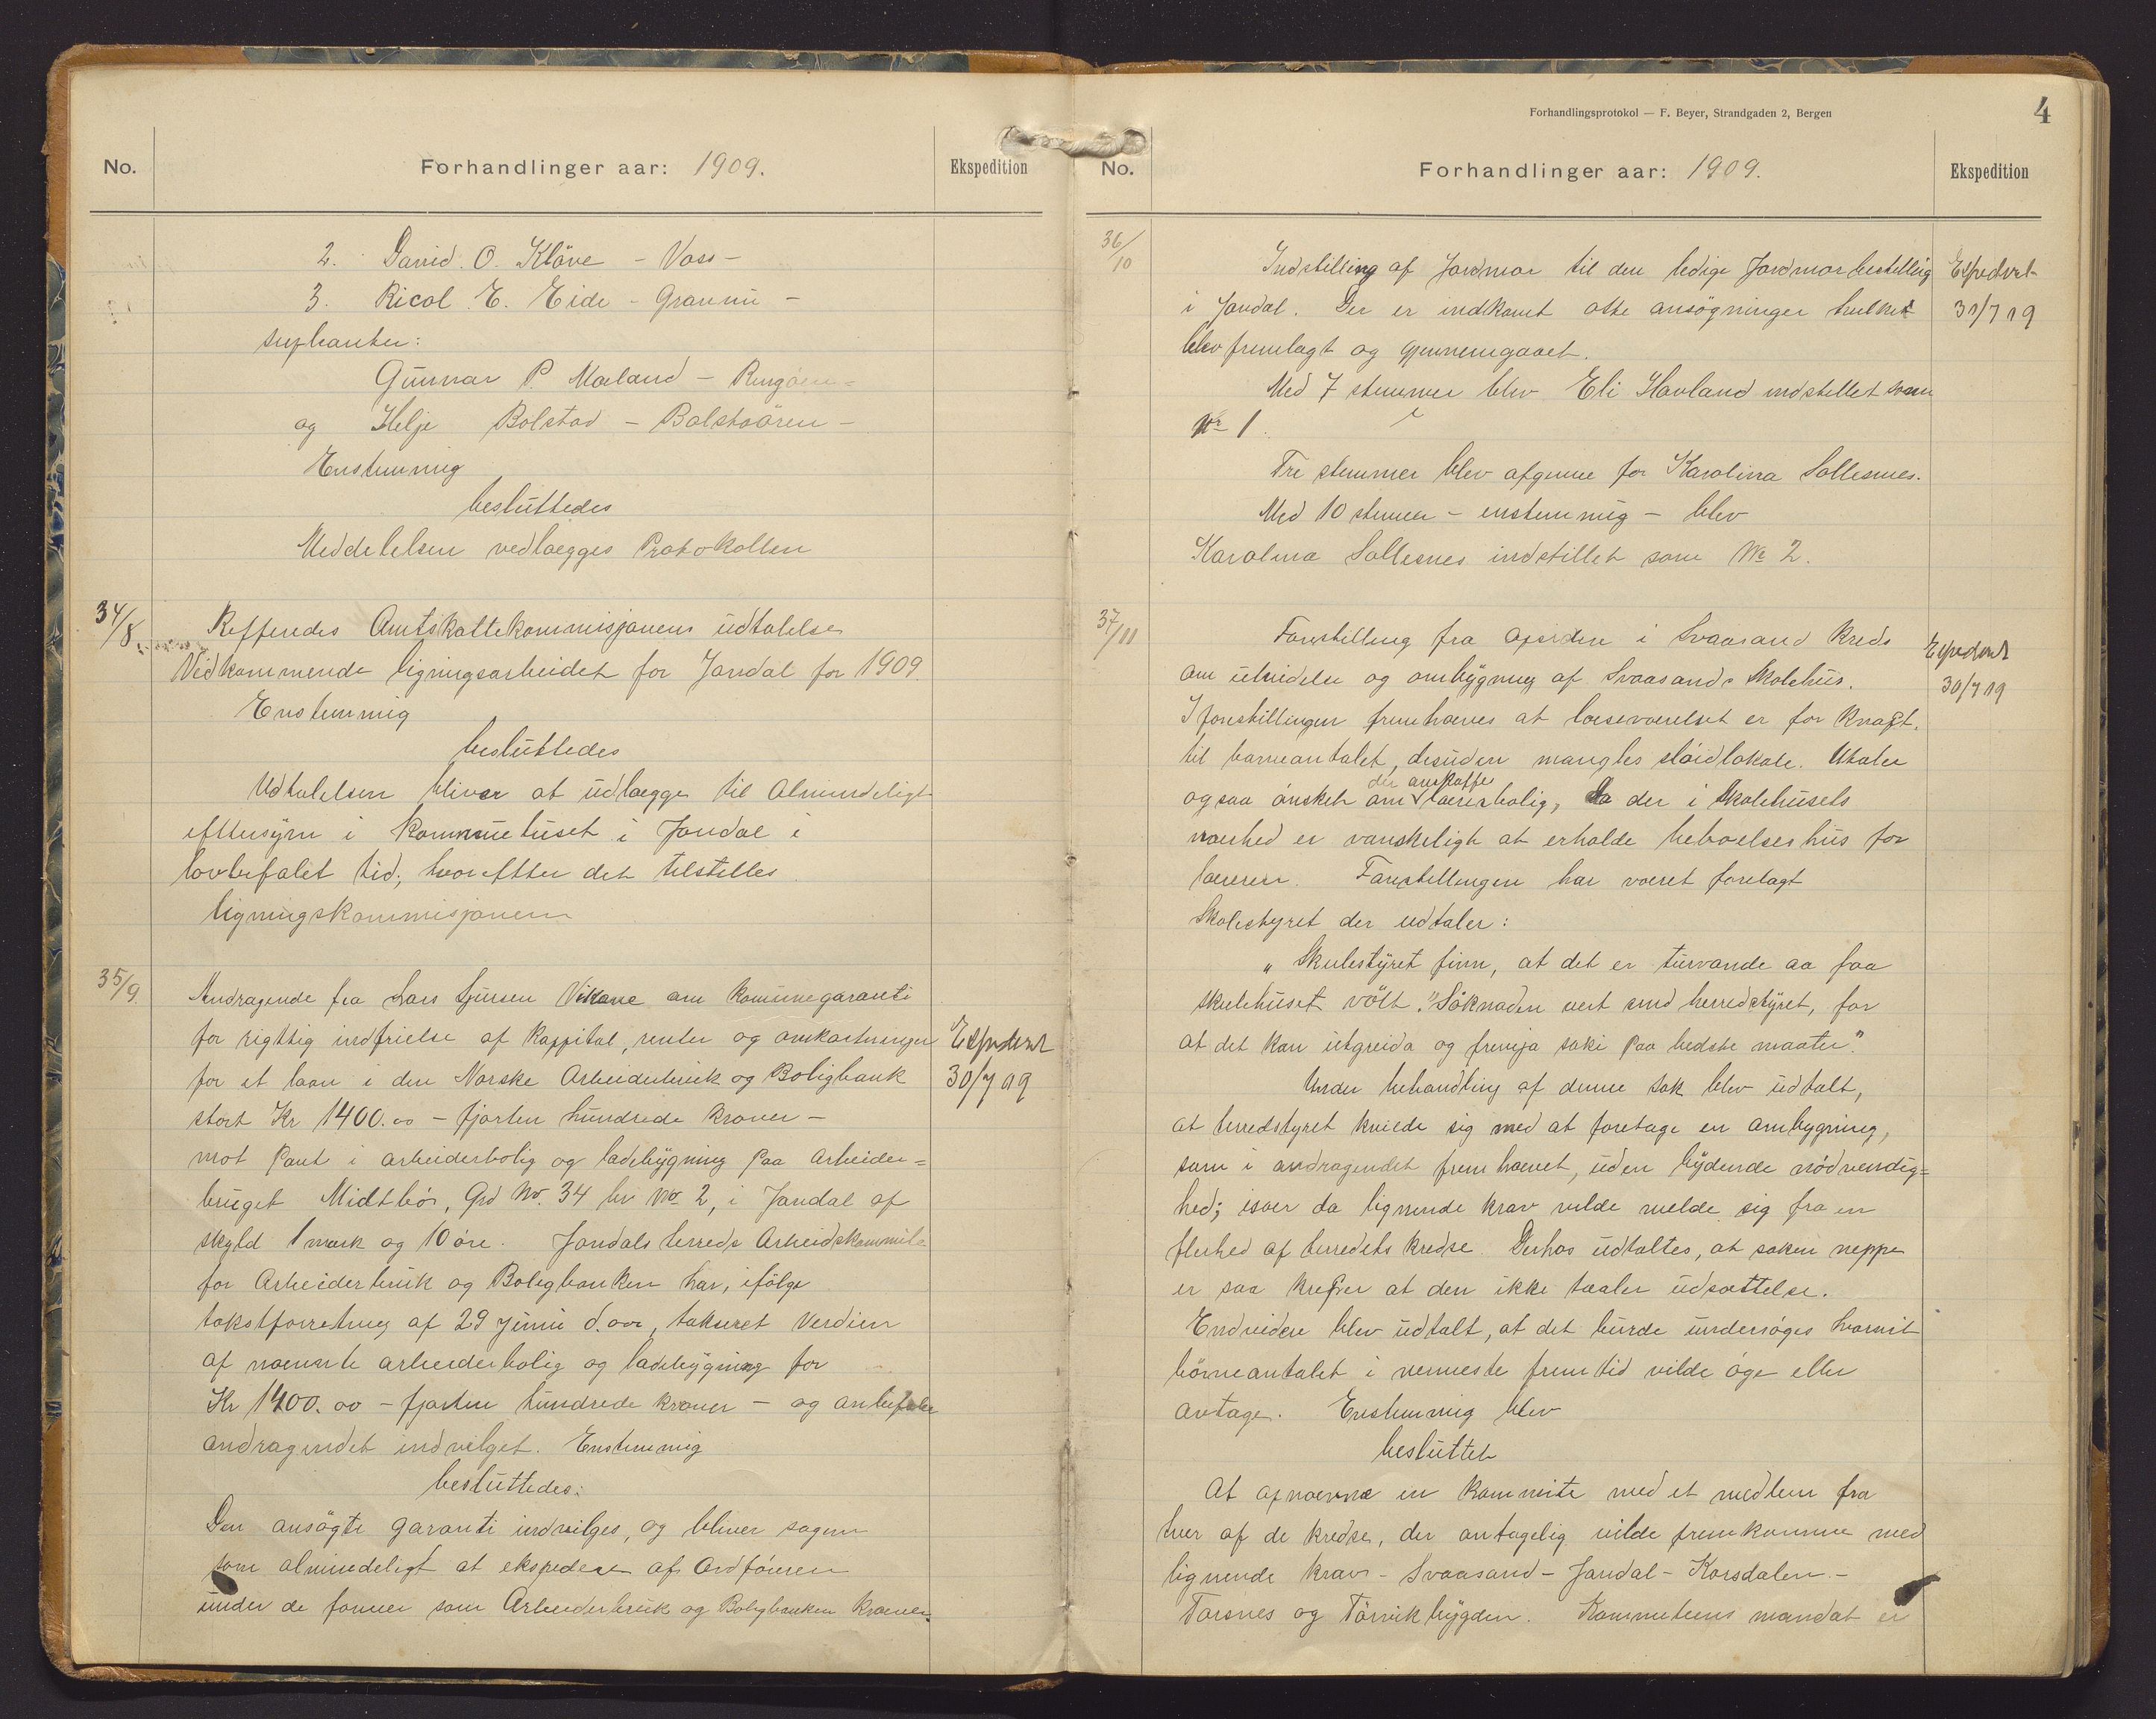 No.
Forhandlinger aar: 1909.
Ekspedition
2. David. O. Kløve - Voss -
3. Ricol E. Eide - Granvin -
suplanter:
Gunnar P. Mæland -
og Helje Bolstad - Bolstadøren -
Enstemmig
besluttedes
Meddelelsen vedlægges Protokollen
34/8.
Refferedes Amtskattekommisjonens udtalelse
Vedkommende ligningsarbeidet for Jondal for 1909
Enstemmig
besluttedes
Udtalelsen bliver at udlægge til Almindeligt
eftersyn i Kommunehuset i Jondal i
lovbefalet tid; hvorefter det tilstilles
ligningskommisjonen
35/9.
Andragende fra Lars Sjursen Vikane om kommunegaranti
for rigttig indfrielse af kappital, renter og omkostninger
for et laan i den Norske Arbeiderbruk og Boligbank
stort Kr 1400.00 - fjorten hundrede kroner -
mot Pant i arbeiderbolig og ladebygning paa Arbeider=
bruget Midtbø, Grd No. 34 br No 2, i Jondal af
skyld 1 mark og 10 øre. Jondals herreds Arbeidskommite
for Arbeiderbruk og Boligbanken har, ifølge
takstforretning af 29 juni d. aar, takseret Verdien
af nævnte arbeiderbolig og ladebygning for
Kr 1400.00 - fjorten hundrede kroner - og anbefaler
andragendet indvilget. Enstemmig
besluttedes:
Den ansøgte garanti indvilges, og bliver sagen
som almindeligt at ekspedere af Ordføreren
under de former som Arbeiderbruk og Boligbanken kræver.
Expedert
30/7 09
Forhandlingsprotokol — F. Beyer, Strandgaden 2, Bergen
4
No.
Forhandlinger aar: 1909.
Ekspedition
36/10
Indstilling af Jordmor til den ledige Jordmorbestilling
i Jondal. Der er indkomet otte ansøgninger hvilket
blev fremlagt og gjennemgaaet.
Med 7 stemmer blev Eli Havland indstillet som
No 1.
Tre stemmer blev afgivne for Karolina Sollesnes.
Med 10 stemmer - enstemmig - blev
Karolina Sollesnes indstillet som No 2.
Expedert
30/7 09
37/11
Forestilling fra Opsidere i Svaasand Kreds
om utvidelse og ombygning af Svaasands Skolehus.
I forestillingen fremhæves at læseværelset er for knapt.
til barneantalet, desuden mangles sløidlokale. Utaler
ogsaa ønsket om der anskaffes lærerbolig, da der i Skolehusets
nærhed er vanskeligt at erholde beboelseshus for
læreren. Forestillingen har været forelagt
Skolestyret der udtaler:
„Skulestyret finn, at det er turvande aa faa
skulehuset vølt." Søknaden vert send herredstyret, for
at det kan utgreida og fremja saki paa bedste maate."
Under behandling af denne sak blev udtalt,
at herredstyret kviede sig med at foretage en ombygning,
som i andragendet fremhævet, uden bydende nødvendig=
hed; især da lignende krav vilde melde sig fra en
flerhed af herredets kredse. Derhos udtaltes, at saken neppe
er saa kræver at den ikke taaler udsættelse.
Endvidere blev udtalt, at det burde undersøges hvorvit
børneantalet i nermeste fremtid vilde øge eller
avtage. Enstemmig blev
besluttet
At opnævne en kommite med et medlem fra
hver af de kredse, der antagelig vilde fremkomme med
lignende krav - Svaasand - Jondal - Korsdalen -
Torsnes og Tørvikbygden. Kommiteens mandat er
Expedert
30/7 09